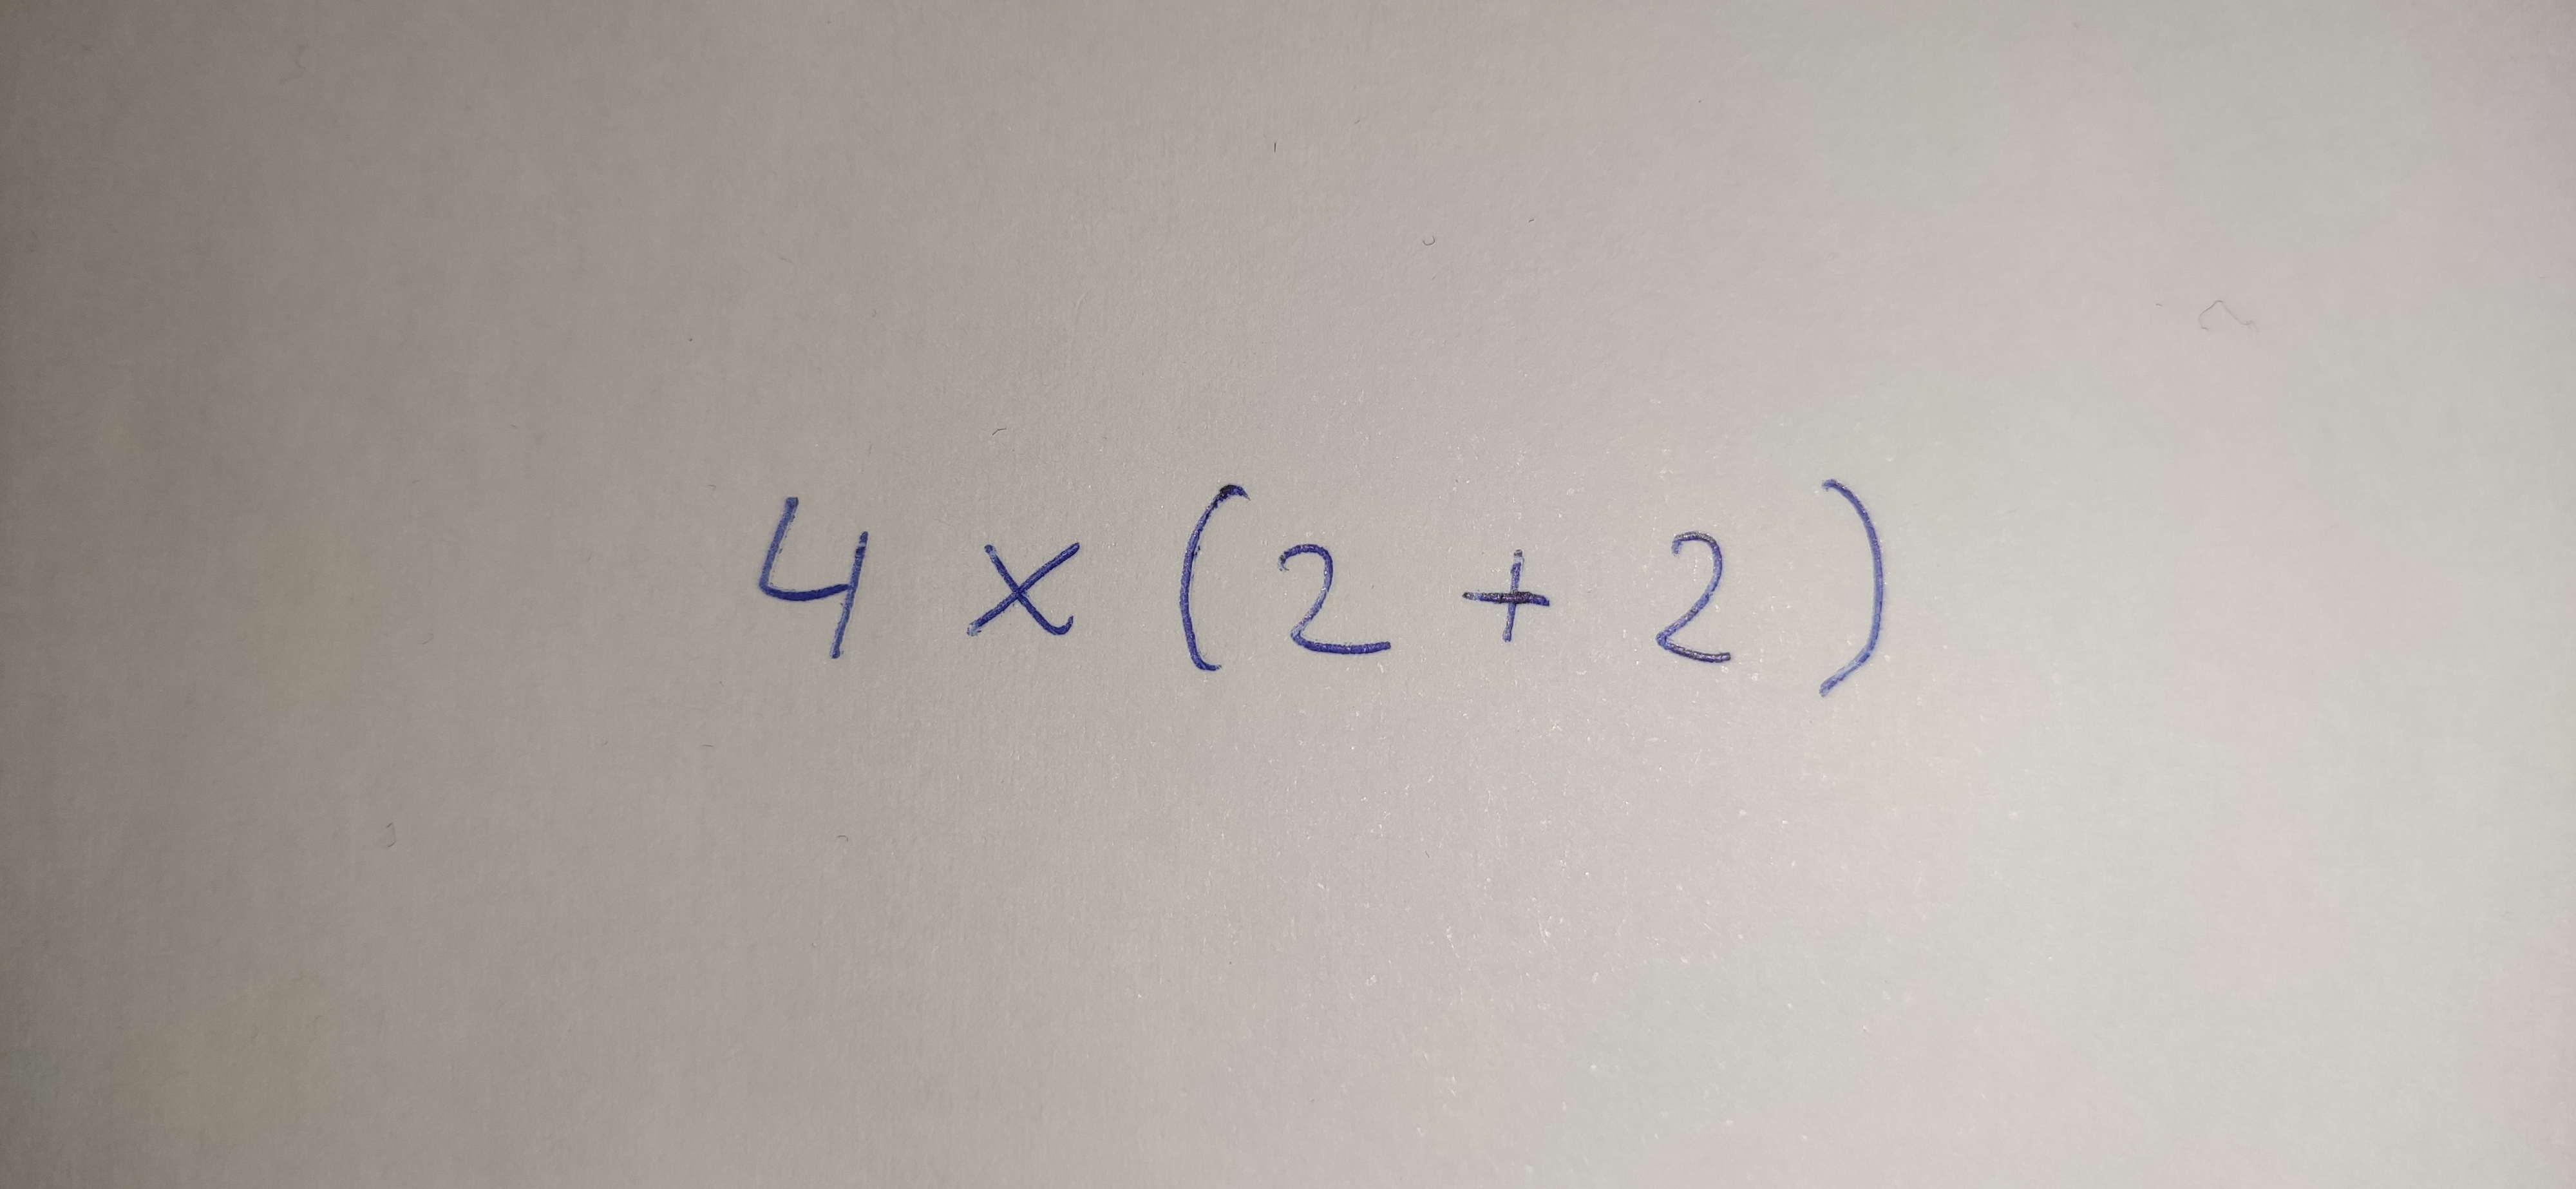 4 × (2 + 2)